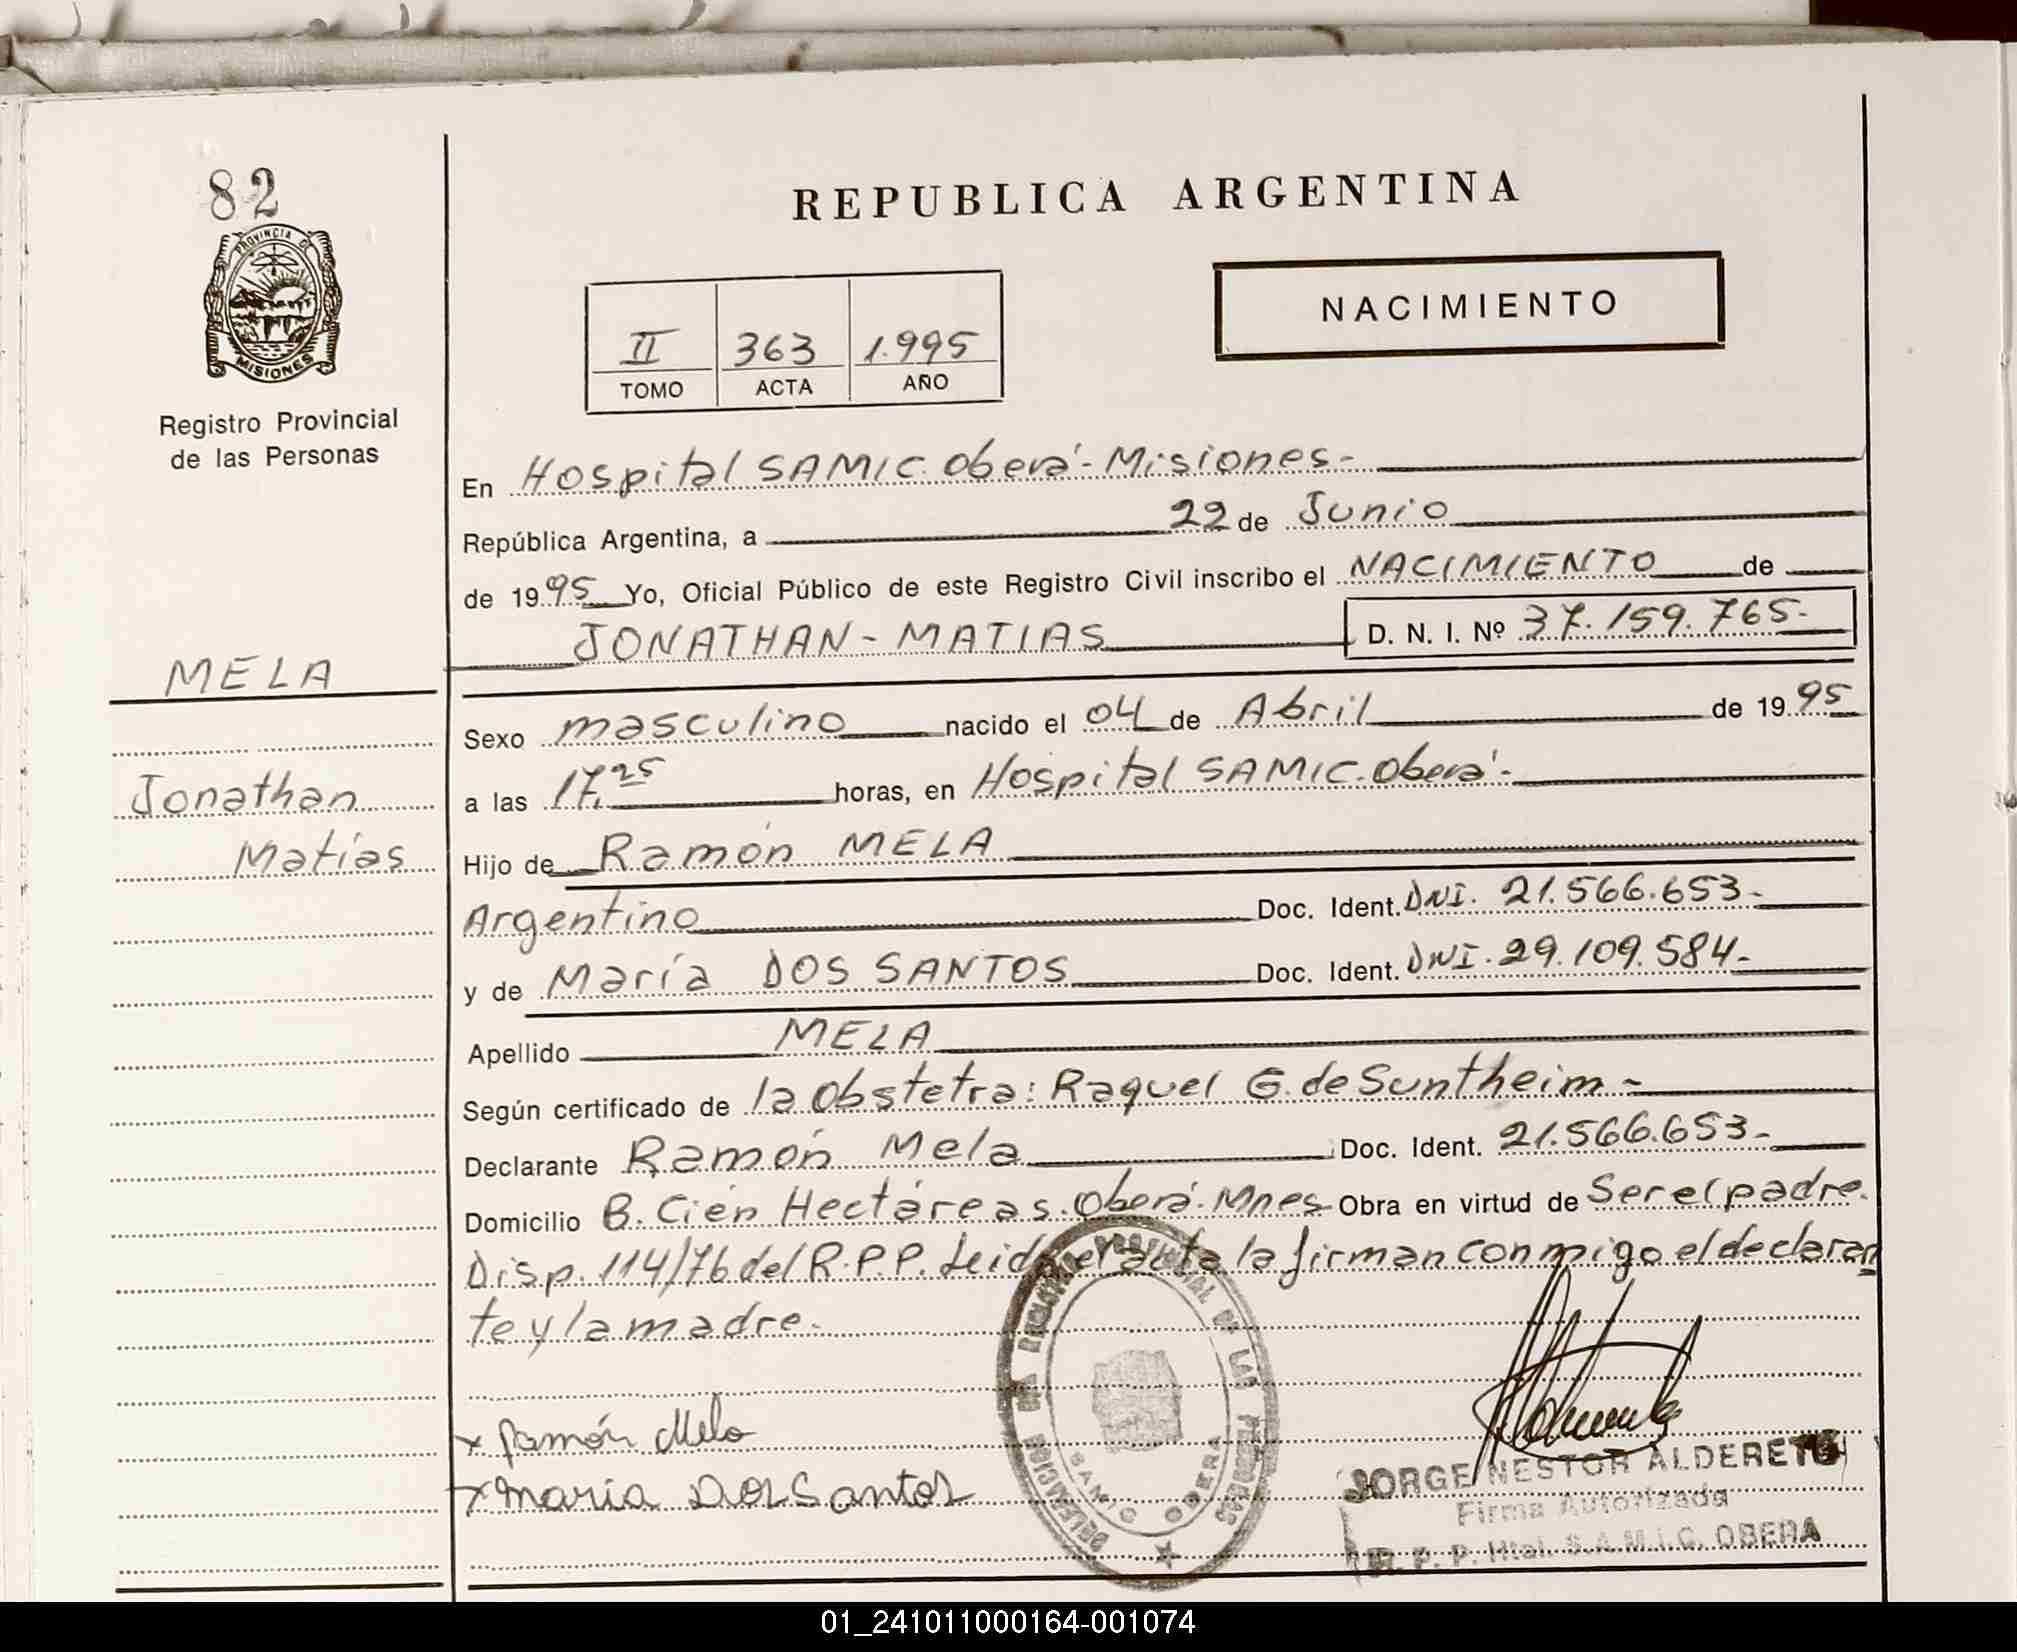 82
PROVINCIA DE
MISIONES
Registro Provincial
de las Personas
MELA
Jonathan
Matías
REPUBLICA ARGENTINA
NACIMIENTO
II 363 1.995
TOMO ACTA AÑO
En Hospital SAMIC. Oberá - Misiones.-
República Argentina, a 22 de Junio
de 1995 Yo, Oficial Público de este Registro Civil inscribo el NACIMIENTO de
JONATHAN - MATIAS D. N. I. Nº 37.159.765.-
Sexo masculino nacido el 04 de Abril de 1995
a las 17,25 horas, en Hospital SAMIC. Oberá.-
Hijo de Ramón MELA
Argentino Doc. Ident. DNI. 21.566.653.-
y de María DOS SANTOS Doc. Ident. DNI. 29.109.584.-
Apellido MELA
Según certificado de la Obstetra: Raquel G. de Suntheim.-
Declarante Ramón Mela Doc. Ident. 21.566.653.-
Domicilio B. Cién Hectáreas. Oberá. Mnes Obra en virtud de Ser el padre.
Disp. 114/76 del R.P.P. Leida el acta la firman conmigo el declaran
te y la madre.
x Ramón Mela
x María Dos Santos
DELEGACION DEL REGISTRO PROVINCIAL DE LAS PERSONAS
SAMIC OBERA
JORGE NESTOR ALDERETE
Firma Autorizada
R. P. P. Htal. S.A.M.I.C. OBERA
01_241011000164-001074